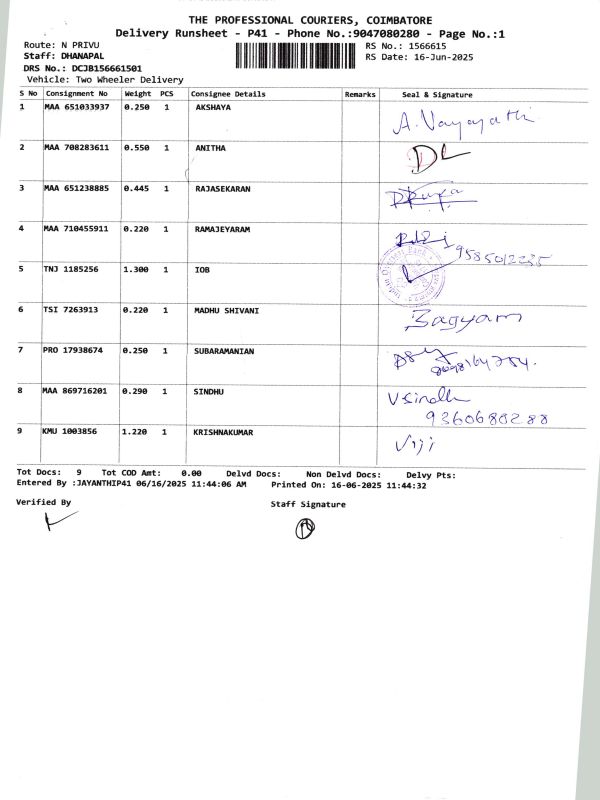 THE PROFESSIONAL COURIERS, COIMBATORE
Delivery Runsheet - P41 - Phone No.:9047080280 - Page No.:1
Route: N PRIVU RS No.: 1566615
Staff: DHANAPAL RS Date: 16-Jun-2025
DRS No.: DCJB156661501
Vehicle: Two Wheeler Delivery
S No Consignment No Weight PCS Consignee Details Remarks Seal & Signature
1 MAA 651033937 0.250 1 AKSHAYA
2 MAA 708283611 0.550 1 ANITHA DL
3 MAA 651238885 0.445 1 RAJASEKARAN
4 MAA 710455911 0.220 1 RAMAJEYARAM
5 TNJ 1185256 1.300 1 IOB
6 TSI 7263913 0.220 1 MADHU SHIVANI Bagyam
7 PRO 17938674 0.250 1 SUBARAMANIAN
8 MAA 869716201 0.290 1 SINDHU V Sindhu
9360680288
9 KMU 1003856 1.220 1 KRISHNAKUMAR Viji
Tot Docs: 9 Tot COD Amt: 0.00 Delvd Docs: Non Delvd Docs: Delvy Pts:
Entered By :JAYANTHIP41 06/16/2025 11:44:06 AM Printed On: 16-06-2025 11:44:32
Verified By Staff Signature